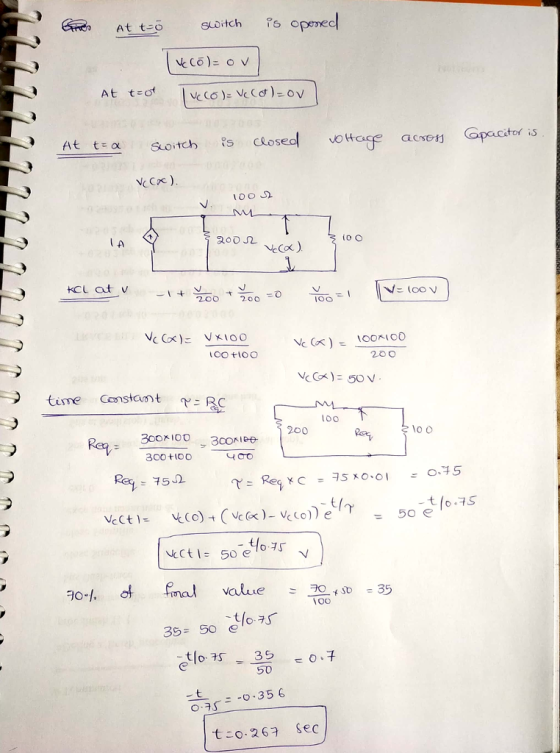 At t=0⁻ switch is opened
Vc(0⁻) = 0 V
At t=0⁺ Vc(0⁻) = Vc(0⁺) = 0V
At t=α switch is closed voltage across Capacitor is
Vc(α).
100 Ω
V
1A
200Ω
Vc(α)
100
KCL at V -1 + V/200 + V/200 = 0 V/100 = 1 V = 100V
Vc(α) = V×100/100+100 Vc(α) = 100×100/200
Vc(α) = 50V.
time constant τ = RC
eq
100
200
Req
100
Req = 300×100/300+100 = 300×100/400
Req = 75Ω τ = Req × C = 75×0.01 = 0.75
Vc(t) = Vc(0) + (Vc(α) - Vc(0)) e^-t/τ = 50 e^-t/0.75
Vc(t) = 50 e^-t/0.75 V
70% of final value = 70/100 × 50 = 35
35 = 50 e^-t/0.75
e^-t/0.75 = 35/50 = 0.7
-t/0.75 = -0.356
t = 0.267 sec